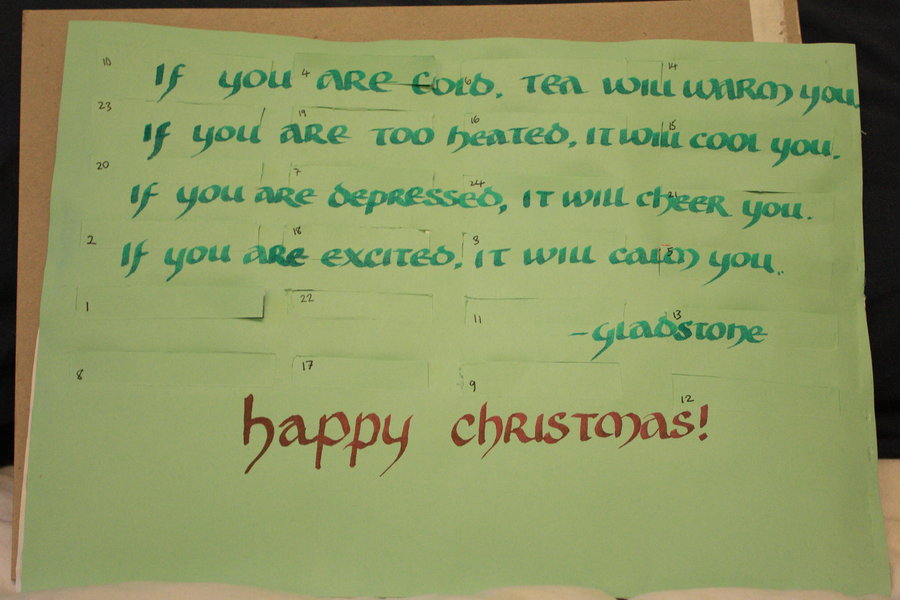 10 4 6 14
If you are cold, tea will warm you.
23 19 16 15
If you are too heated, it will cool you.
20 7 24 21
If you are depressed, it will cheer you.
2 18 3 5
If you are excited, it will calm you.
1 22 11 13
-Gladstone
8 17 9 12
happy christmas!